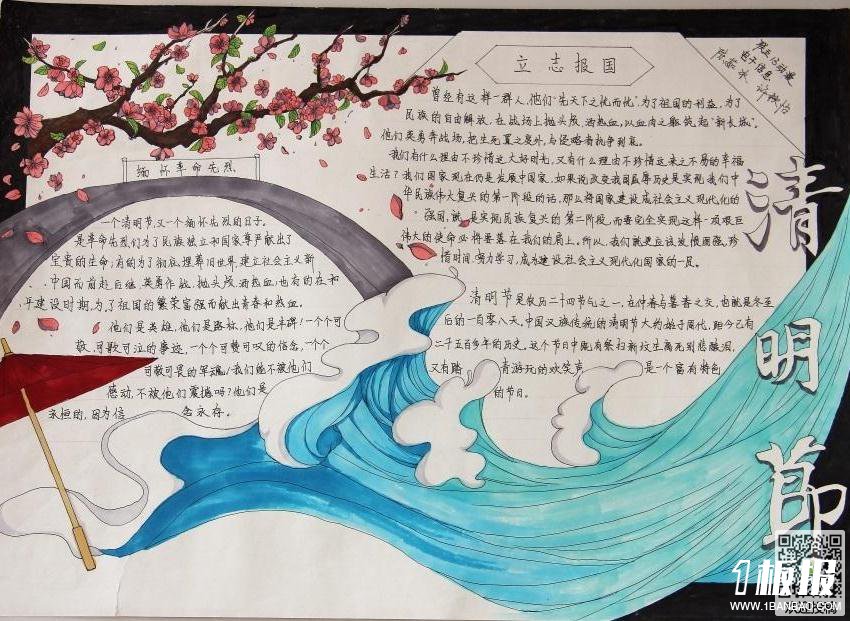 缅怀革命先烈
一个清明节,又一个缅怀先烈的日子。
是革命先烈们为了民族独立和国家尊严献出了
宝贵的生命;有的为了彻底埋葬旧世界,建立社会主义新
中国而前赴后继,英勇作战,抛头颅洒热血;也有的在和
平建设时期,为了祖国的繁荣富强而献出青春和热血。
他们是英雄,他们是路标,他们是丰碑!一个个可
敬,可歌可泣的事迹,一个个可赞可叹的信念,一个个
可敬可畏的军魂!我们能不被他们
感动,不被他们震撼吗?他们是
永恒的,因为信念永存。
立志报国
曾经有这样一群人,他们“先天下之忧而忧”,为了祖国的利益,为了
民族的自由解放,在战场上抛头颅,洒热血,以血肉之躯筑起“新长城”,
他们英勇奔战场,把生死置之度外,与侵略者抗争到底。
我们有什么理由不珍惜这大好时光,又有什么理由不珍惜这来之不易的幸福
生活?我们国家现在仍是发展中国家,如果说改变我国屈辱历史是实现我们中
华民族伟大复兴的第一阶段的话,那么将国家建设成社会主义现代化的
强国,就是实现民族复兴的第二阶段,而要完全实现这样一项艰巨
伟大的使命必将要落在我们的肩上,所以,我们就更应该发愤图强,珍
惜时间,努力学习,成为建设社会主义现代化国家的一员。
清明节是农历二十四节气之一,在仲春与暮春之交,也就是冬至
后的一百零八天,中国汉族传统的清明节大约始于周代,距今已有
二千五百多年的历史。这个节日中既有祭扫新坟生离死别悲酸泪,
又有踏青游玩的欢笑声,是一个富有特色
的节日。
电子信息
清明节
1板报
WWW.1BANBAO.COM